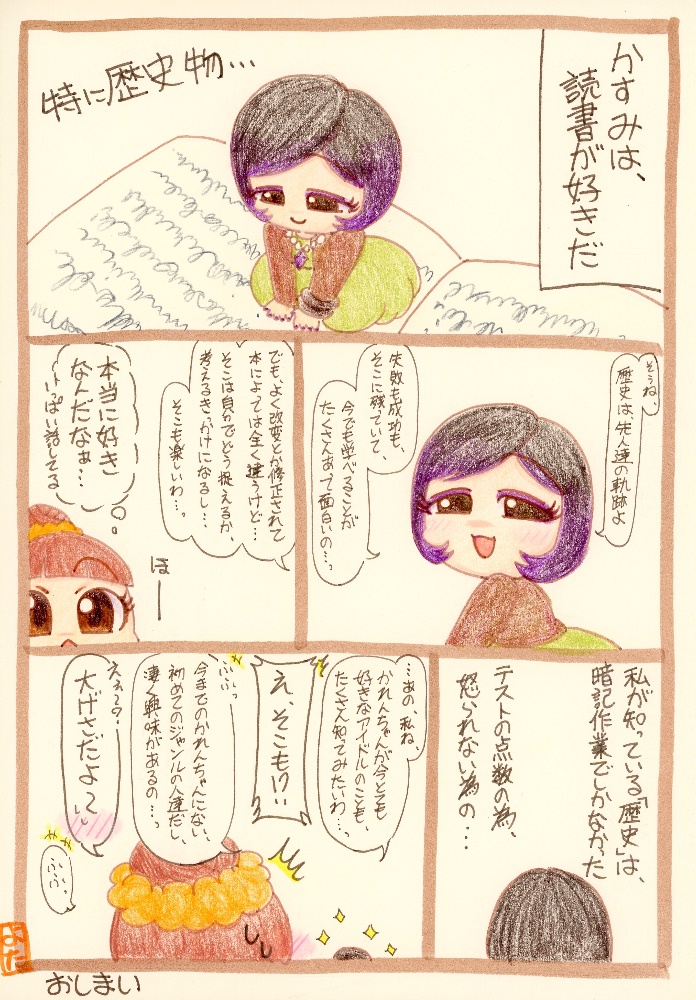 かすみは、
読書が好きだ
特に歴史物…
そうね、
歴史は、先人達の軌跡よ
失敗も成功も、
そこに残っていて、
今でも学べることが
たくさんあって面白いの…っ
でも、よく改変とか修正されて
本によっては全く違うけど…
そこは自分でどう捉えるか、
考えるきっかけになるし…
そこも楽しいわ…っ
本当に好き
なんだなぁ…
いっぱい話してる
ほー
私が知っている「歴史」は、
暗記作業でしかなかった
テストの点数の為、
怒られない為の…
…あの、私ね、
かれんちゃんが今とても
好きなアイドルのことも、
たくさん知ってみたいわ…っ
え、そこも!?
いいっ
今までのかれんちゃんにない、
初めてのジャンルの人達だし、
凄く興味があるの…っ
ええ〜?
大げさだよ〜っ
ふふっ
おしまい
よた